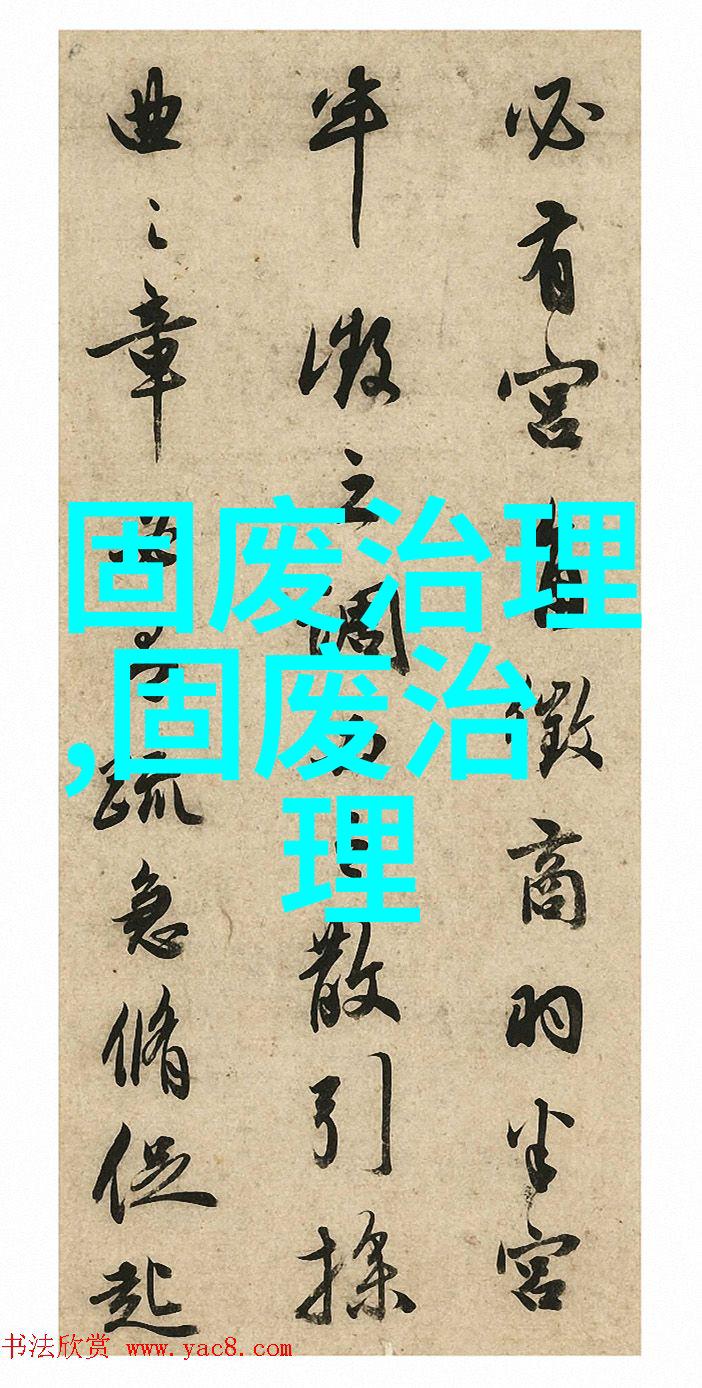 必有宫徵商羽半宫
半徵之調散引操
曲之章疏急脩促起
固废治理
,固废治
理
书法欣赏 www.yac8.com